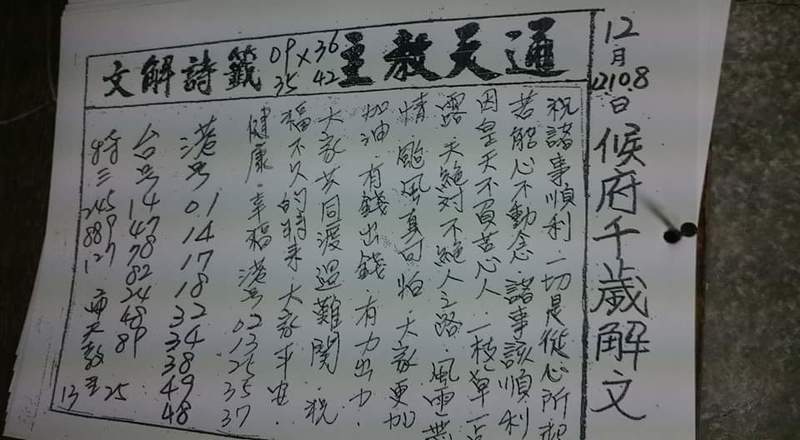 12月2.10.8日候府千歲解文
通天教主
09×36
35 42
籤詩解文
祝諸事順利.一切是從心所起
若能心不動念.諸事該順利
因皇天不負苦心人.一枝草一点
露.天絕对不絕人之路.風雨無
情.颱風真可怕.大家更加
加油.有錢出錢.有力出力.
大家共同渡過難関.祝
福不久的特来大家平安.
健康.幸福.港号 02 13 25 35 37
港号 01 14 17 18 32 34 38 49 48
台号 14 47 78 82 24 48 89
特三 245 889 127
通天教主
13 25